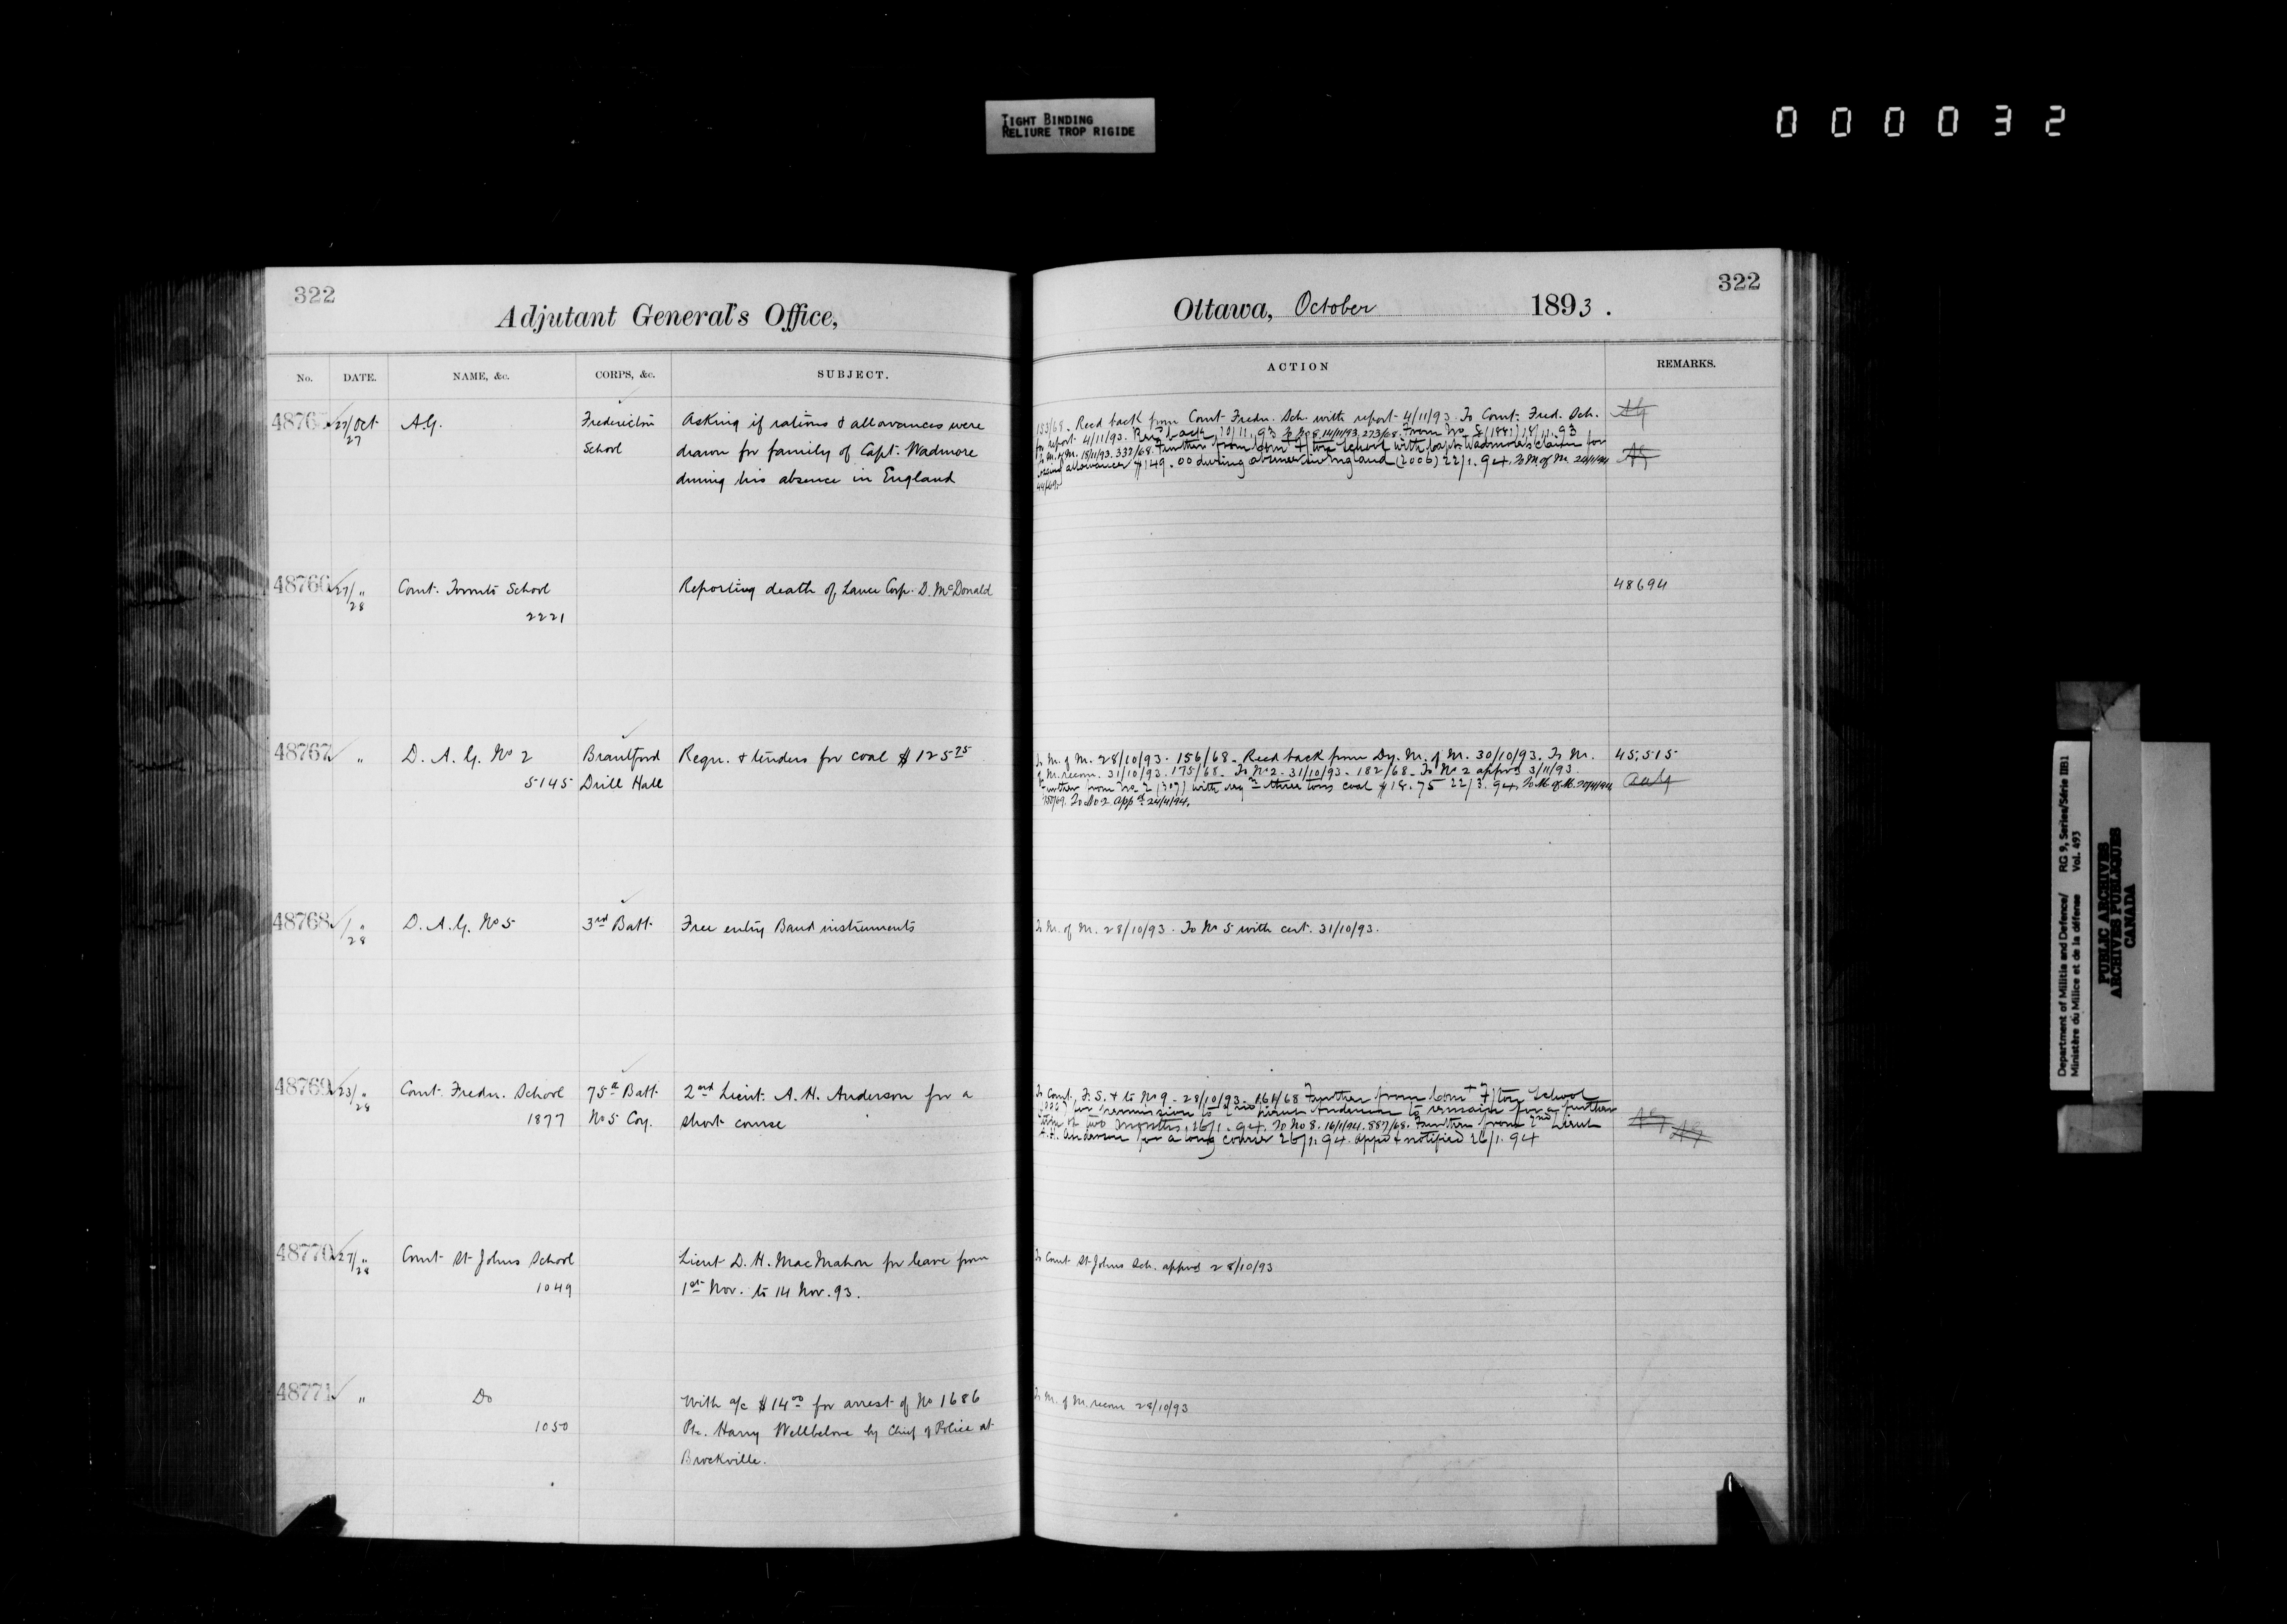 TIGHT BINDING
RELIURE TROP RIGIDE
000032
322
Adjutant General's Office,
No. DATE. NAME, &c. CORPS, &c. SUBJECT.
4876 27/Oct 27 A.G. Fredericton Asking if rations & allowances were
School drawn for family of Capt. Wadmore
during his absence in England
48766 27/ " 28 Comt. Toronto School Reporting death of Lance Corp. D. McDonald
2221
48767 " D. A. G. No 2 Brantford Requ. & tenders for coal $125 75
5145 Drill Hall
48768 / " 28 D. A. G. No 5 3rd Batt. Free entry Band instruments
48769 23/ " 28 Comt. Fredn. School 75th Batt. 2nd Lieut. A. H. Anderson for a
1877 No 5 Coy. short course
48770 27/ " 28 Comt St Johns School Lieut D. H. MacMahon for leave from
1049 1st Nov. to 14 Nov. 93.
48771 " Do With a/c $14 00 for arrest of No 1686
1050 Pte. Harry Wellbelove by Chief of Police at
Brockville.
322
Ottawa, October 1893.
ACTION REMARKS.
153/68. Recd back from Comt. Fredn. Sch. with report 4/11/93. To Comt. Fred. Sch. AG
for report 4/11/93. Recd back 10/11/93 To No 8 14/11/93. 273/68. From No 8 (1881) 18/11.93
To M. of M. 18/11/93. 332/68. Further from Comt F/ton School with Capt. Wadmore's claim for
allowances $149.00 during absence in England (2006) 22/1.94. To M of M. 24/1/94 AG
48694
To M. of M. 28/10/93. 156/68. Recd back from Dy. M. of M. 30/10/93. To M. 45,515
of M. recom. 31/10/93. 175/68. To No 2. 31/10/93. 182/68. To No 2 appvd 3/11/93.
Further from No 2 (309) with reqn three tons coal $18.75 22/3.94. To M. of M. 20/4/94 AAG
To No 2 appd 24/4/94.
To M. of M. 28/10/93. To No 5 with cert. 31/10/93.
To Comt. F. S. & to No 9. 28/10/93. 161/68 Further from Comt F/ton School
for permission to 2nd Lieut Anderson to remain for a further
term of two months. 16/1.94. To No 8. 16/1/94. 887/68. Further from 2nd Lieut AG AG
A.H. Anderson for a long course 26/1.94. appd & notified 26/1.94
To Comt St Johns Sch. appvd 28/10/93
To M. of M. recom 28/10/93
Department of Militia and Defence/ RG 9, Series/Série IIB1
Ministère du Milice et de la défense Vol. 493
PUBLIC ARCHIVES
ARCHIVES PUBLIQUES
CANADA